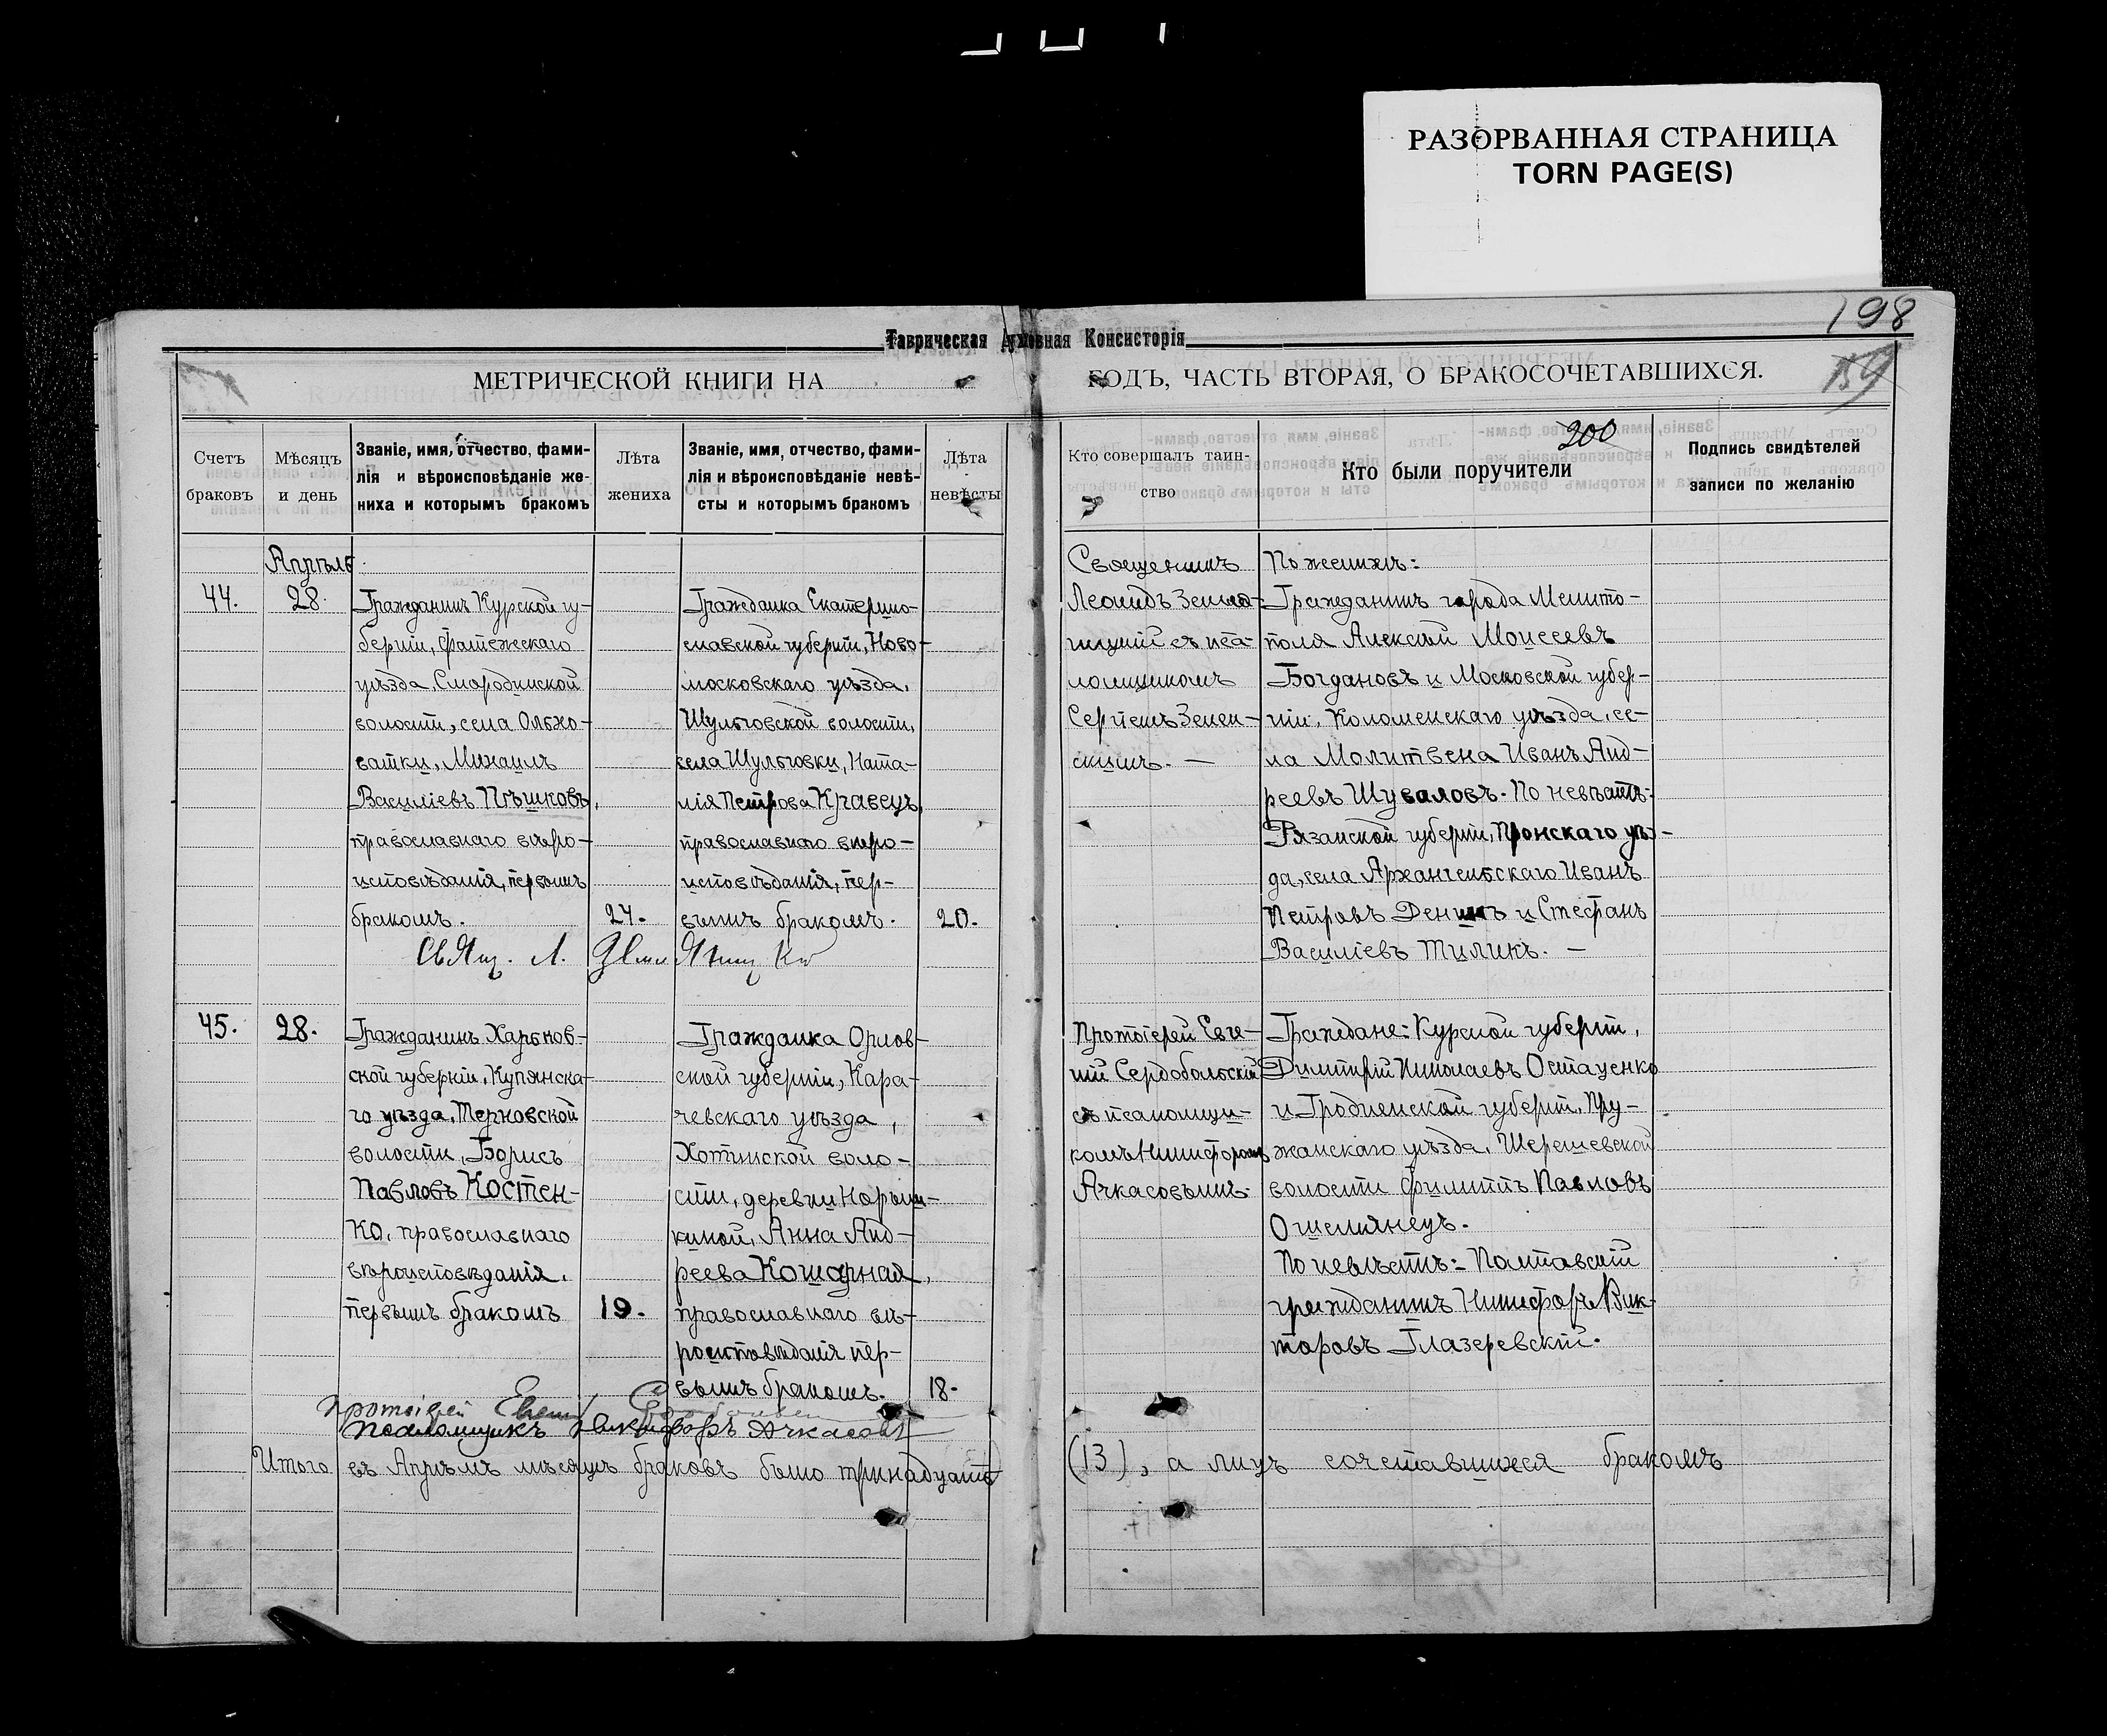 РАЗОРВАННАЯ СТРАНИЦА
TORN PAGE(S)
198
Таврическая Духовная Консисторія
МЕТРИЧЕСКОЙ КНИГИ НА
ГОДЪ, ЧАСТЬ ВТОРАЯ, О БРАКОСОЧЕТАВШИХСЯ.
159
200
Счетъ
браковъ
Мѣсяцъ
и день
Званіе, имя, отчество, фами-
лія и вѣроисповѣданіе же-
ниха и которымъ бракомъ
Лѣта
жениха
Званіе, имя, отчество, фами-
лія и вѣроисповѣданіе невѣ-
сты и которымъ бракомъ
Лѣта
невѣсты
Кто совершалъ таин-
ство
Кто были поручители
Подпись свидѣтелей
записи по желанію
Апрѣль
44.
28.
Гражданинъ Курской гу-
берніи, Фатежскаго
уѣзда, Смородинской
волости, села Ольхо-
ватки, Михаилъ
Василіевъ Пѣшковъ,
православнаго вѣро-
исповѣданія, первымъ
бракомъ.
24.
Гражданка Екатерино-
славской губерніи, Ново-
московскаго уѣзда,
Шульговской волости,
села Шульговки, Ната-
лія Петрова Кравецъ,
православнаго вѣро-
исповѣданія, пер-
вымъ бракомъ.
20.
Священникъ
Леонидъ
съ пса-
ломщикомъ
Сергіемъ Зелен-
скимъ. —
По женихѣ:
Гражданинъ города Мелито-
поля Алексѣй Моисеевъ
Богдановъ и Московской губер-
ніи, Коломенскаго уѣзда, се-
ла Молитвена Иванъ Анд-
реевъ Шуваловъ. По невѣстѣ:
Рязанской губерніи, Пронскаго уѣз-
да, села Архангельскаго Иванъ
Петровъ Денинъ и Стефанъ
Василіевъ Тиликъ. —
Свящ. Л.
45.
28.
Гражданинъ Харьков-
ской губерніи, Купянска-
го уѣзда, Терновской
волости, Борисъ
Павловъ Костен-
ко, православнаго
вѣроисповѣданія,
первымъ бракомъ
19.
Гражданка Орлов-
ской губерніи, Кара-
чевскаго уѣзда,
Хотинской воло-
сти, деревни Нарыш-
киной, Анна Анд-
реева Кошарная,
православнаго вѣ-
роисповѣданія пер-
вымъ бракомъ.
18.
Протоіерей Евге-
ній Сердобольскій
съ псаломщи-
комъ Никифоромъ
Ачкасовымъ.
Граждане: Курской губерніи,
Димитрій Николаевъ Остаценко
и Гродненской губерніи, Пру-
жанскаго уѣзда, Шерешевской
волости Филиппъ Павловъ
Ошемянецъ.
По невѣстѣ: Полтавскій
гражданинъ Никифоръ Вик-
торовъ Глазеревскій.
Протоіерей
Псаломщикъ Никифоръ Ачкасовъ
Итого въ Апрѣлѣ мѣсяцѣ браковъ было тринадцать
(13), а лицъ сочетавшихся бракомъ